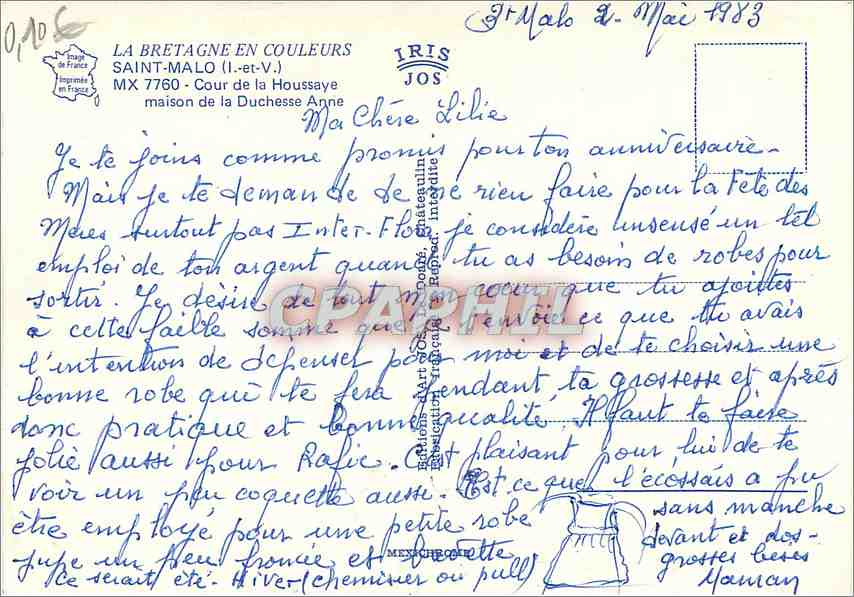 0,10€
St Malo 2 - Mai 1983
Image
de France
Imprimée
en France
LA BRETAGNE EN COULEURS
SAINT-MALO (I.-et-V.)
MX 7760 - Cour de la Houssaye
maison de la Duchesse Anne
IRIS
JOS
Ma Chère Lilie
Je te joins comme promis pour ton anniversaire -
Mais je te demande de ne rien faire pour la Fête des
Mères surtout pas Inter-Flora je considère insensé un tel
emploi de ton argent quand tu as besoin de robes pour
sortir. Je désire de tout mon coeur que tu ajoutes
à cette faible somme que je t'envoie ce que tu avais
l'intention de dépenser pour moi et de te choisir une
bonne robe qui te fera pendant ta grossesse et après
donc pratique et bonne qualité. Il faut te faire
jolie aussi pour Rafic. C'est plaisant pour lui de te
voir un peu coquette aussi. Est ce que l'écossais a pu
être employé pour une petite robe
jupe un peu froncée et bavette
ce serait été - Hiver (chemisier ou pull)
sans manche
devant et dos -
grosses bises
Maman
Editions d'Art JOS Le Doaré, Châteaulin
Fabrication française - Reprod. interdite
MEXICHROME
CPAPHIL